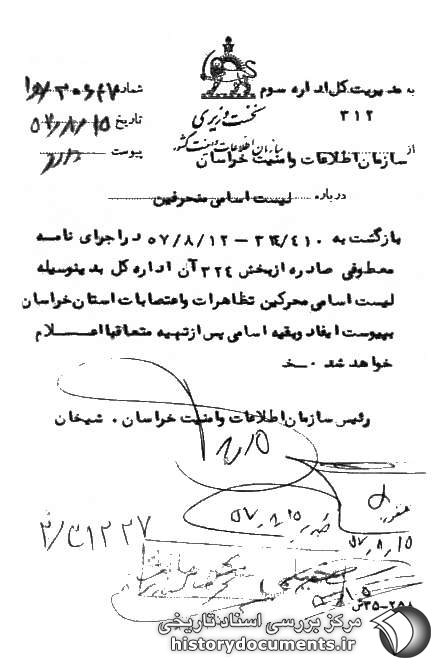 به مدیریت کل اداره سوم
۳۱۲
نخست وزیری
سازمان اطلاعات و امنیت کشور
شماره
تاریخ ۵۷/۸/۱۵
پیوست
از سازمان اطلاعات و امنیت خراسان
درباره لیست اسامی منحرفین
بازگشت به ۳۲۴/۴۱۰ – ۵۷/۸/۱۲ در اجرای نامه
معطوفی صادره از بخش ۳۲۴ آن اداره کل بدینوسیله
لیست اسامی محرکین تظاهرات و اعتصابات استان خراسان
بپیوست ایفاد و بقیه اسامی پس از تهیه متعاقبا اعلام
خواهد شد . خ
رئیس سازمان اطلاعات و امنیت خراسان . شیخان
۵۷/۸/۱۵
۵۷/۸/۱۵
۲۵۸–۳۵ش
مرکز بررسی اسناد تاریخی
historydocuments.ir